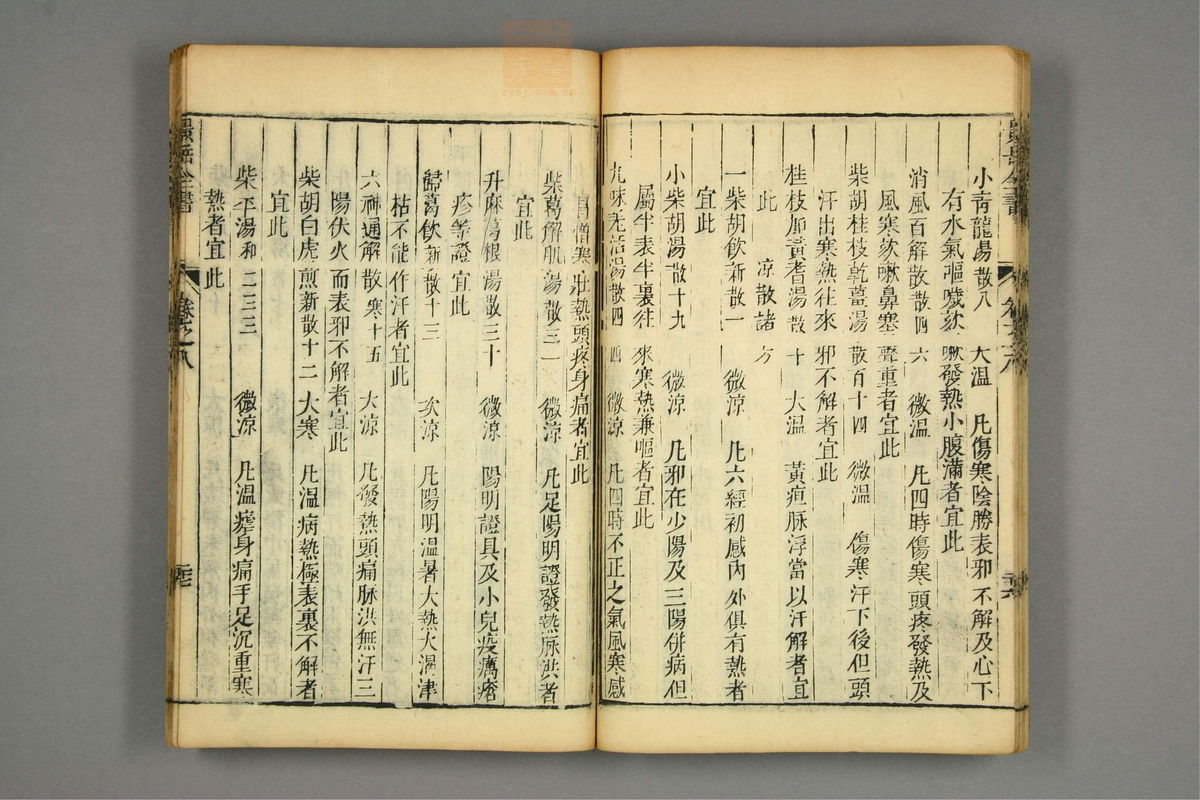 小青龍湯散八 大温 凡傷寒陰勝表邪不解及心下
有水氣嘔噦欬嗽發熱小腹滿者宜此
消風百解散散四六 微温 凡四時傷寒頭疼發熱及
風寒欬嗽鼻塞聲重者宜此
柴胡桂枝乾薑湯散百十四 微温 傷寒汗下後但頭
汗出寒熱往來邪不解者宜此
桂枝加黃耆湯散十 大温 黃疸脉浮當以汗解者宜
此 凉散諸方
一柴胡飲新散一 微凉 凡六經初感內外俱有熱者
宜此
小柴胡湯散十九 微凉 凡邪在少陽及三陽併病但
屬半表半裏往來寒熱兼嘔者宜此
九味羌活湯散四四 微凉 凡四時不正之氣風寒感
冒憎寒壯熱頭疼身痛者宜此
柴葛解肌湯散三一 微凉 凡足陽明證發熱脉洪者
宜此
升麻葛根湯散三十 微凉 陽明證具及小兒疫癘瘡
疹等證宜此
歸葛飲新散十三 次凉 凡陽明温暑大熱大渴津
枯不能作汗者宜此
六神通解散寒十五 大凉 凡發熱頭痛脉洪無汗三
陽伏火而表邪不解者宜此
柴胡白虎煎新散十二 大寒 凡温病熱極表裏不解者
宜此
柴平湯和二三三 微凉 凡温瘧身痛手足沉重寒
熱者宜此
景岳全書 卷之八